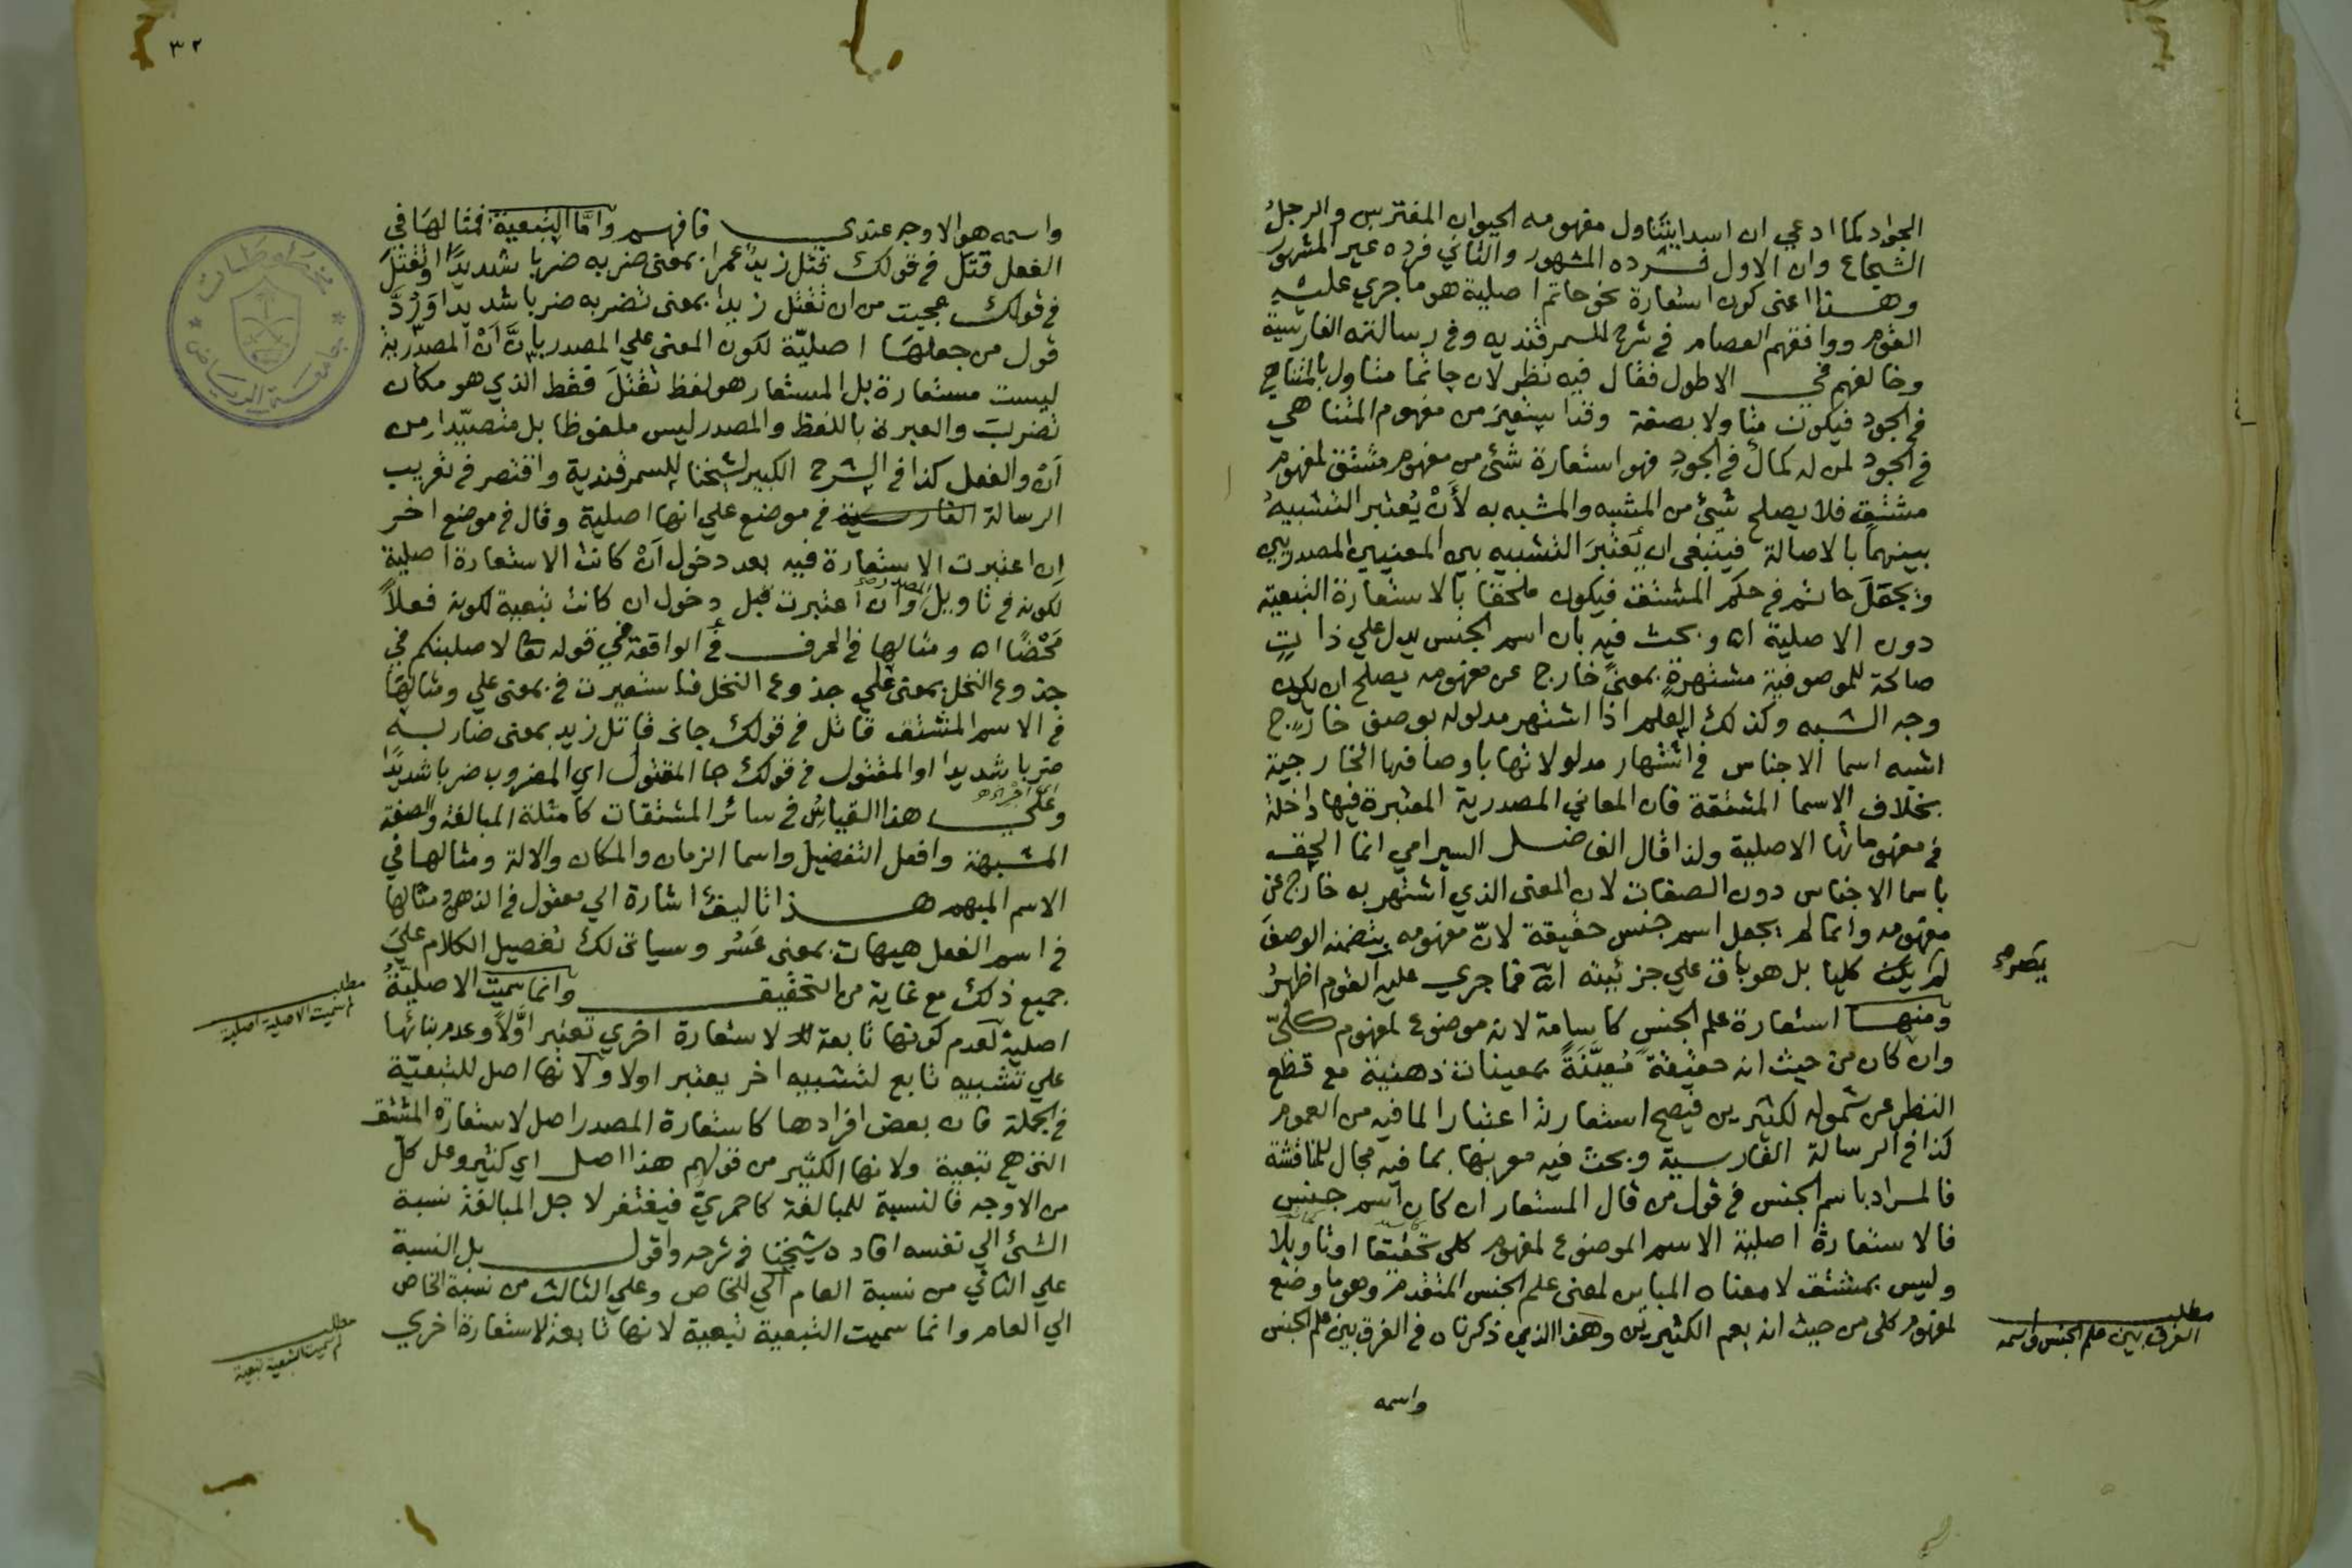 الجواد كما ادعي ان اسدا يتناول مفهومه الحيوان المفترس والرجل
الشجاع وان الاول فرده المشهور والثاني فرده غير المشهور
وهذا اعنى كون استعارة نحو حاتم اصلية هو ما جري عليه
القوم ووافقهم العصام في شرح السمرقنديه وفي رسالته الفارسية
وخالفهم في الاطول فقال فيه نظر لان حاتما متاول بالمتناهي
في الجود فيكون متاولا بصفة وقد استعير من مفهوم المتناهي
في الجود لمن له كمال في الجود فهو استعارة شئ من مفهوم مشتق لمفهوم
مشتق فلا يصلح شئ من المشبه والمشبه به لأَنْ يُعتبر التشبيهُ
بينهما بالاصالة فينبغى ان يُعْتَبَرَ التشبيه بين المعنيين المصدريين
ويجعَلَ حاتم في حكم المشتق فيكون ملحقا بالاستعارة التبعية
دون الاصلية اه وبحث فيه بان اسم الجنس يدل علي ذاتٍ
صالحة للموصوفية مشتهرةٍ بمعنىً خارج عن مفهومه يصلح ان يكون
وجه الشبه وكذلك العلم اذا اشتهر مدلوله بوصف خارج
اشبه اسما الاجناس في اشتهار مدلولاتها باوصافها الخارجية
بخلاف الاسما المشتقة فان المعاني المصدرية المعتبرة فيها داخلة
في مفهوماتها الاصلية ولذا قال الفاضل السيرامي انما الحق
باسما الاجناس دون الصفات لان المعنى الذي اشتهر به خارج عن
مفهومه وانما لم يجعل اسم جنس حقيقة لانّ مفهومه بتضمنه الوصف
لم يكن كليا بل هو باق علي جزئيته اه فما جري عليه القوم اظهرُ
يَصِرْ صح
ومنها استعارة علم الجنس كاسامة لانه موضوع لمفهوم كلّىّ
وان كان من حيث انه حقيقةً مُعيَّنَةً بمعينات ذهنية مع قطع
النظر عن شموله لكثيرين فيصح استعارته اعتبارا لما فيه من العموم
كذا في الرسالة الفارسية وبحث فيه معربها بما فيه مجال للمناقشة
فالمراد باسم الجنس في قول من قال المستعار ان كان اسم جنس
فالاستعارة اصلية الاسم الموضوع لمفهوم كلى تحقيقا او تاويلا
وليس بمشتق لا معناه المباين لمعنى علم الجنس المتقدم وهو ما وضع
لمفهوم كلى من حيث انه يعم الكثيرين وهذا الذي ذكرناه في الفرق بين علم الجنس
مطلب
الفرق بين علم الجنس واسمه
واسمه
٣٢
واسمه هو الاوجه عندي فافهم وامّا التبعية فمثالها في
الفعل قتل في قولك قتل زيد عمرا بمعنى ضربه ضربا شديدًا او تَقْتُلَ
في قولك عجبت من ان تقتل زيدا بمعنى تضربه ضربا شديدا وَرُدَّ
قول من جعلها اصليّة لكون المعنى علي المصدر بانَّ اَنْ المصدريّة
ليست مستعارة بل المستعار هو لفظ تقتلَ فقط الذي هو مكان
تضربَ والعبرة باللفظ والمصدر ليس ملفوظا بل متصيّدا من
اَنْ والفعل كذا في الشرح الكبير لشيخنا للسمرقندية واقتصر في تعريب
الرسالة الفارسية في موضع علي انها اصلية وقال في موضع اخر
ان اعتبرت الاستعارة فيه بعد دخول اَنْ كانت الاستعارة اصلية
لكونه في تاويل المصدر وان اعتبرت قبل دخول ان كانت تبعية لكونه فعلاً
مَحْضًا اه ومثالها في الحرف في الواقعة في قوله تعا لاصلبنكم في
جذوع النخل بمعنى علي جذوع النخل فاستعيرت في بمعنى علي ومثالها
في الاسم المشتق قاتل في قولك جانى قاتل زيد بمعنى ضاربه
ضربا شديدا او المقتول في قولك جا المقتول اي المضروب ضربا شديدًا
وعلي هذا القياسُ في سائر المشتقات كامثلة المبالغة والصفة
المشبهة وافعل التفضيل واسما الزمان والمكان والالة ومثالها في
الاسم المبهم هذا تاليف اشارة الي معقول في الذهن ومثالها
في اسم الفعل هيهات بمعنى عَسُر وسياتى لك تفصيل الكلام علي
جميع ذلك مع غاية من التحقيق وانما سميت الاصلية
مطلب
لم سميت الاصلية اصلية
اصلية لعدم كونها تابعة لاستعارة اخري تعتبر اوّلاً وعدم بنائها
علي تشبيه تابع لتشبيه اخر يعتبر اولا ولانها اصل للتبعيّة
في الجملة فان بعض افرادها كاستعارة المصدر اصل لاستعارة المشتق
التي هي تبعية ولانها الكثير من قولهم هذا اصل اي كثير وعل كلّ
من الاوجه فالنسبة للمبالغة كاحمريّ فيغتفر لاجل المبالغة نسبة
الشئ الي نفسه افاده شيخنا في شرحه واقول بل النسبة
علي الثاني من نسبة العام الي الخاص وعلي الثالث من نسبة الخاص
الي العام وانما سميت التبعية تبعية لانها تابعة لاستعارة اخري
مطلب
لم سميت التبعية تبعية
جامعة الرياض